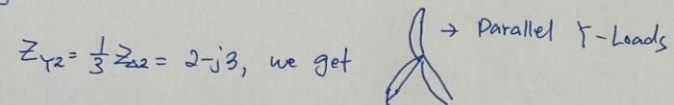 Z_Y2 = 1/3 Z_Δ2 = 2-j3, we get → Parallel Y-Loads